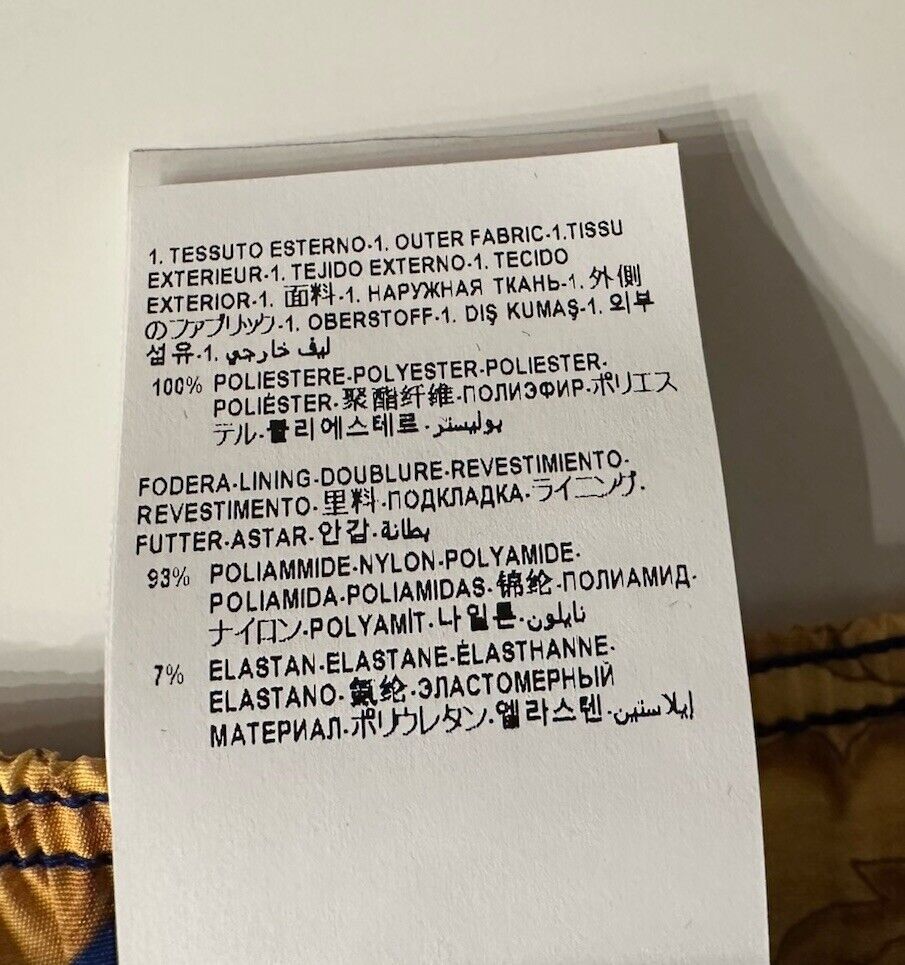 1. TESSUTO ESTERNO-1. OUTER FABRIC-1.TISSU
EXTERIEUR-1. TEJIDO EXTERNO-1. TECIDO
EXTERIOR-1. 面料-1. НАРУЖНАЯ ТКАНЬ-1. 外側
のファブリック-1. OBERSTOFF-1. DIŞ KUMAŞ-1. 외부
섬유-1. ليف خارجي
100% POLIESTERE-POLYESTER-POLIESTER-
POLIÉSTER-聚酯纤维-ПОЛИЭФИР-ポリエス
テル-폴리에스테르-بوليستر
FODERA-LINING-DOUBLURE-REVESTIMIENTO-
REVESTIMENTO-里料-ПОДКЛАДКА-ライニング-
FUTTER-ASTAR-안감-بطانة
93% POLIAMMIDE-NYLON-POLYAMIDE-
POLIAMIDA-POLIAMIDAS-锦纶-ПОЛИАМИД-
ナイロン-POLYAMİT-나일론-نايلون
7% ELASTAN-ELASTANE-ÉLASTHANNE-
ELASTANO-氨纶-ЭЛАСТОМЕРНЫЙ
МАТЕРИАЛ-ポリウレタン-엘라스텐-إيلاستين